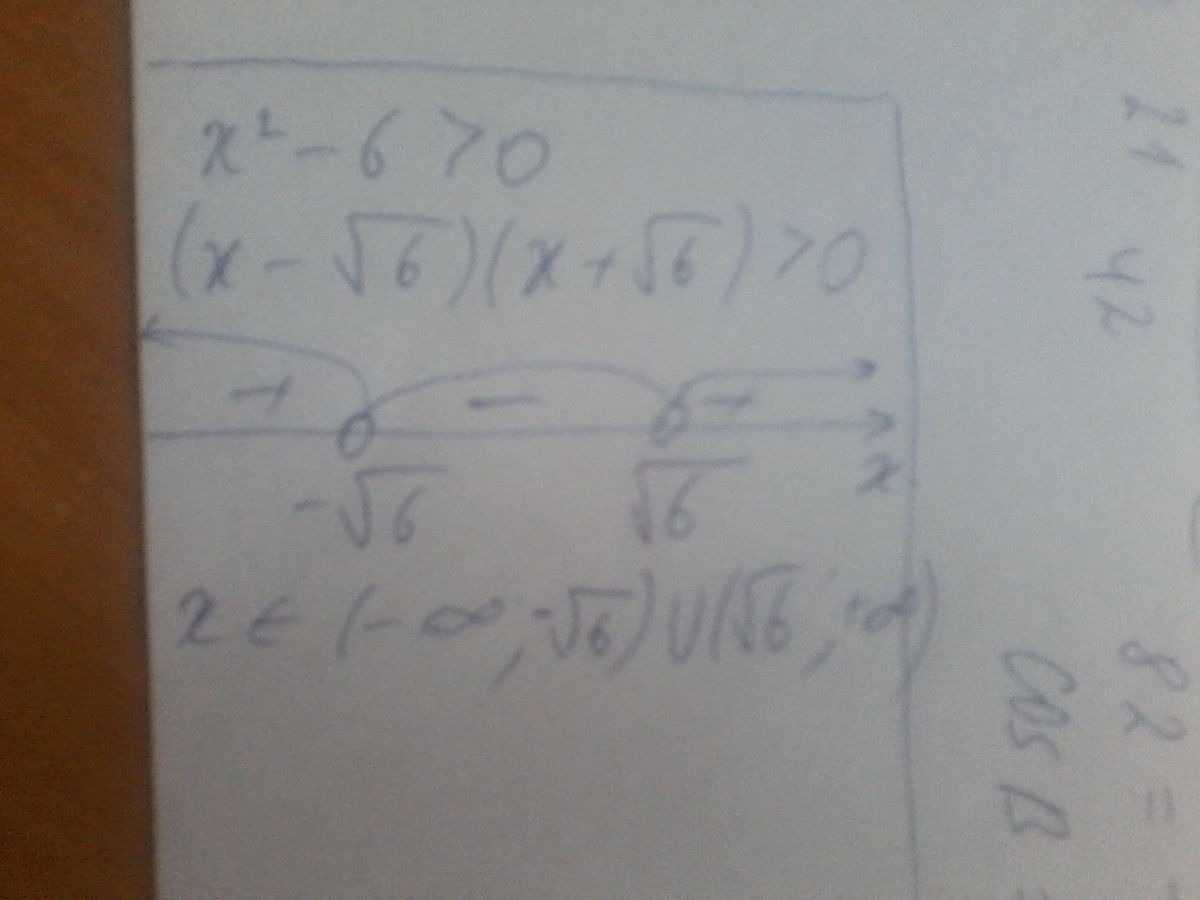 x² - 6 > 0
(x - √6)(x + √6) > 0
+ - +
-√6 √6 x
x ∈ (-∞; -√6) ∪ (√6; +∞)
21
42
82 =
cos B =